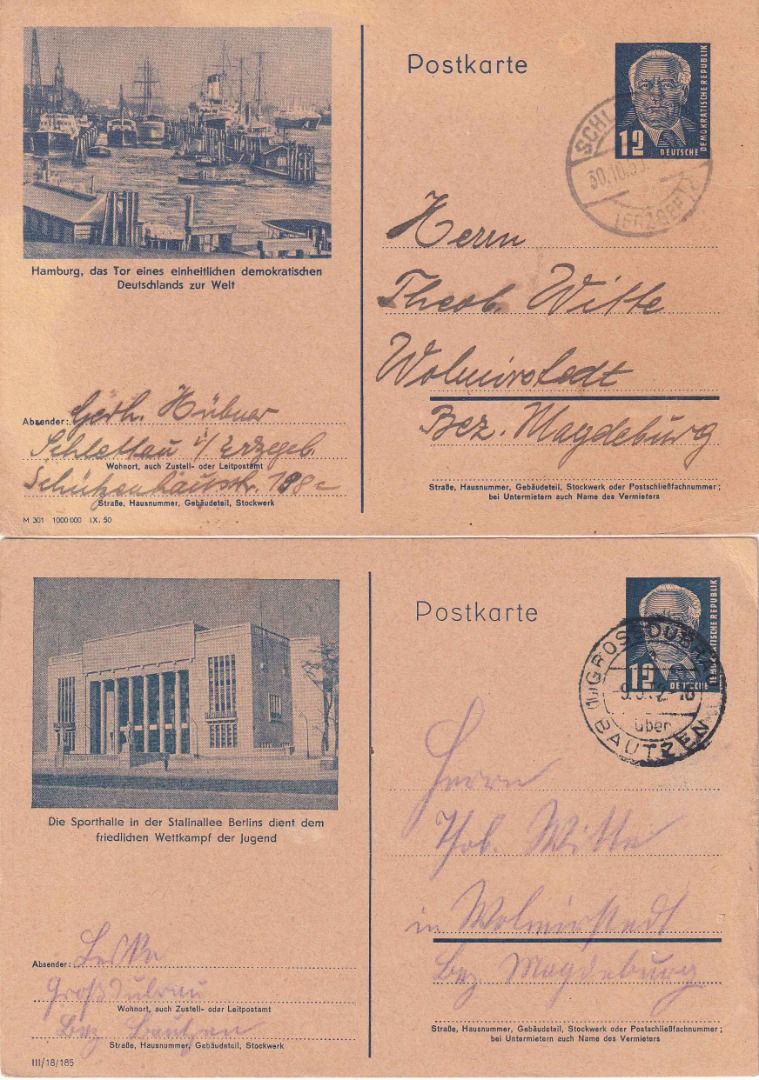 Postkarte
12
DEUTSCHE
DEMOKRATISCHE REPUBLIK
SCHL
30.10.5
(ERZGEB
Hamburg, das Tor eines einheitlichen demokratischen
Deutschlands zur Welt
Herrn
Theob. Witte
Wolmirstedt
Bez. Magdeburg
Absender: Gerh. Hübner
Schlettau i/ Erzgeb.
Wohnort, auch Zustell- oder Leitpostamt
Schützenhausstr. 188c
Straße, Hausnummer, Gebäudeteil, Stockwerk
Straße, Hausnummer, Gebäudeteil, Stockwerk oder Postschließfachnummer;
bei Untermietern auch Name des Vermieters
M 301 1000000 IX. 50
Postkarte
12
DEUTSCHE
DEMOKRATISCHE REPUBLIK
GROSSDUB
über
BAUTZEN
Die Sporthalle in der Stalinallee Berlins dient dem
friedlichen Wettkampf der Jugend
Herrn
Thob. Witte
in Wolmirstedt
Bez Magdeburg
Absender: Leska
Großdubrau
Wohnort, auch Zustell- oder Leitpostamt
Bez Bautzen
Straße, Hausnummer, Gebäudeteil, Stockwerk
Straße, Hausnummer, Gebäudeteil, Stockwerk oder Postschließfachnummer;
bei Untermietern auch Name des Vermieters
III/18/185